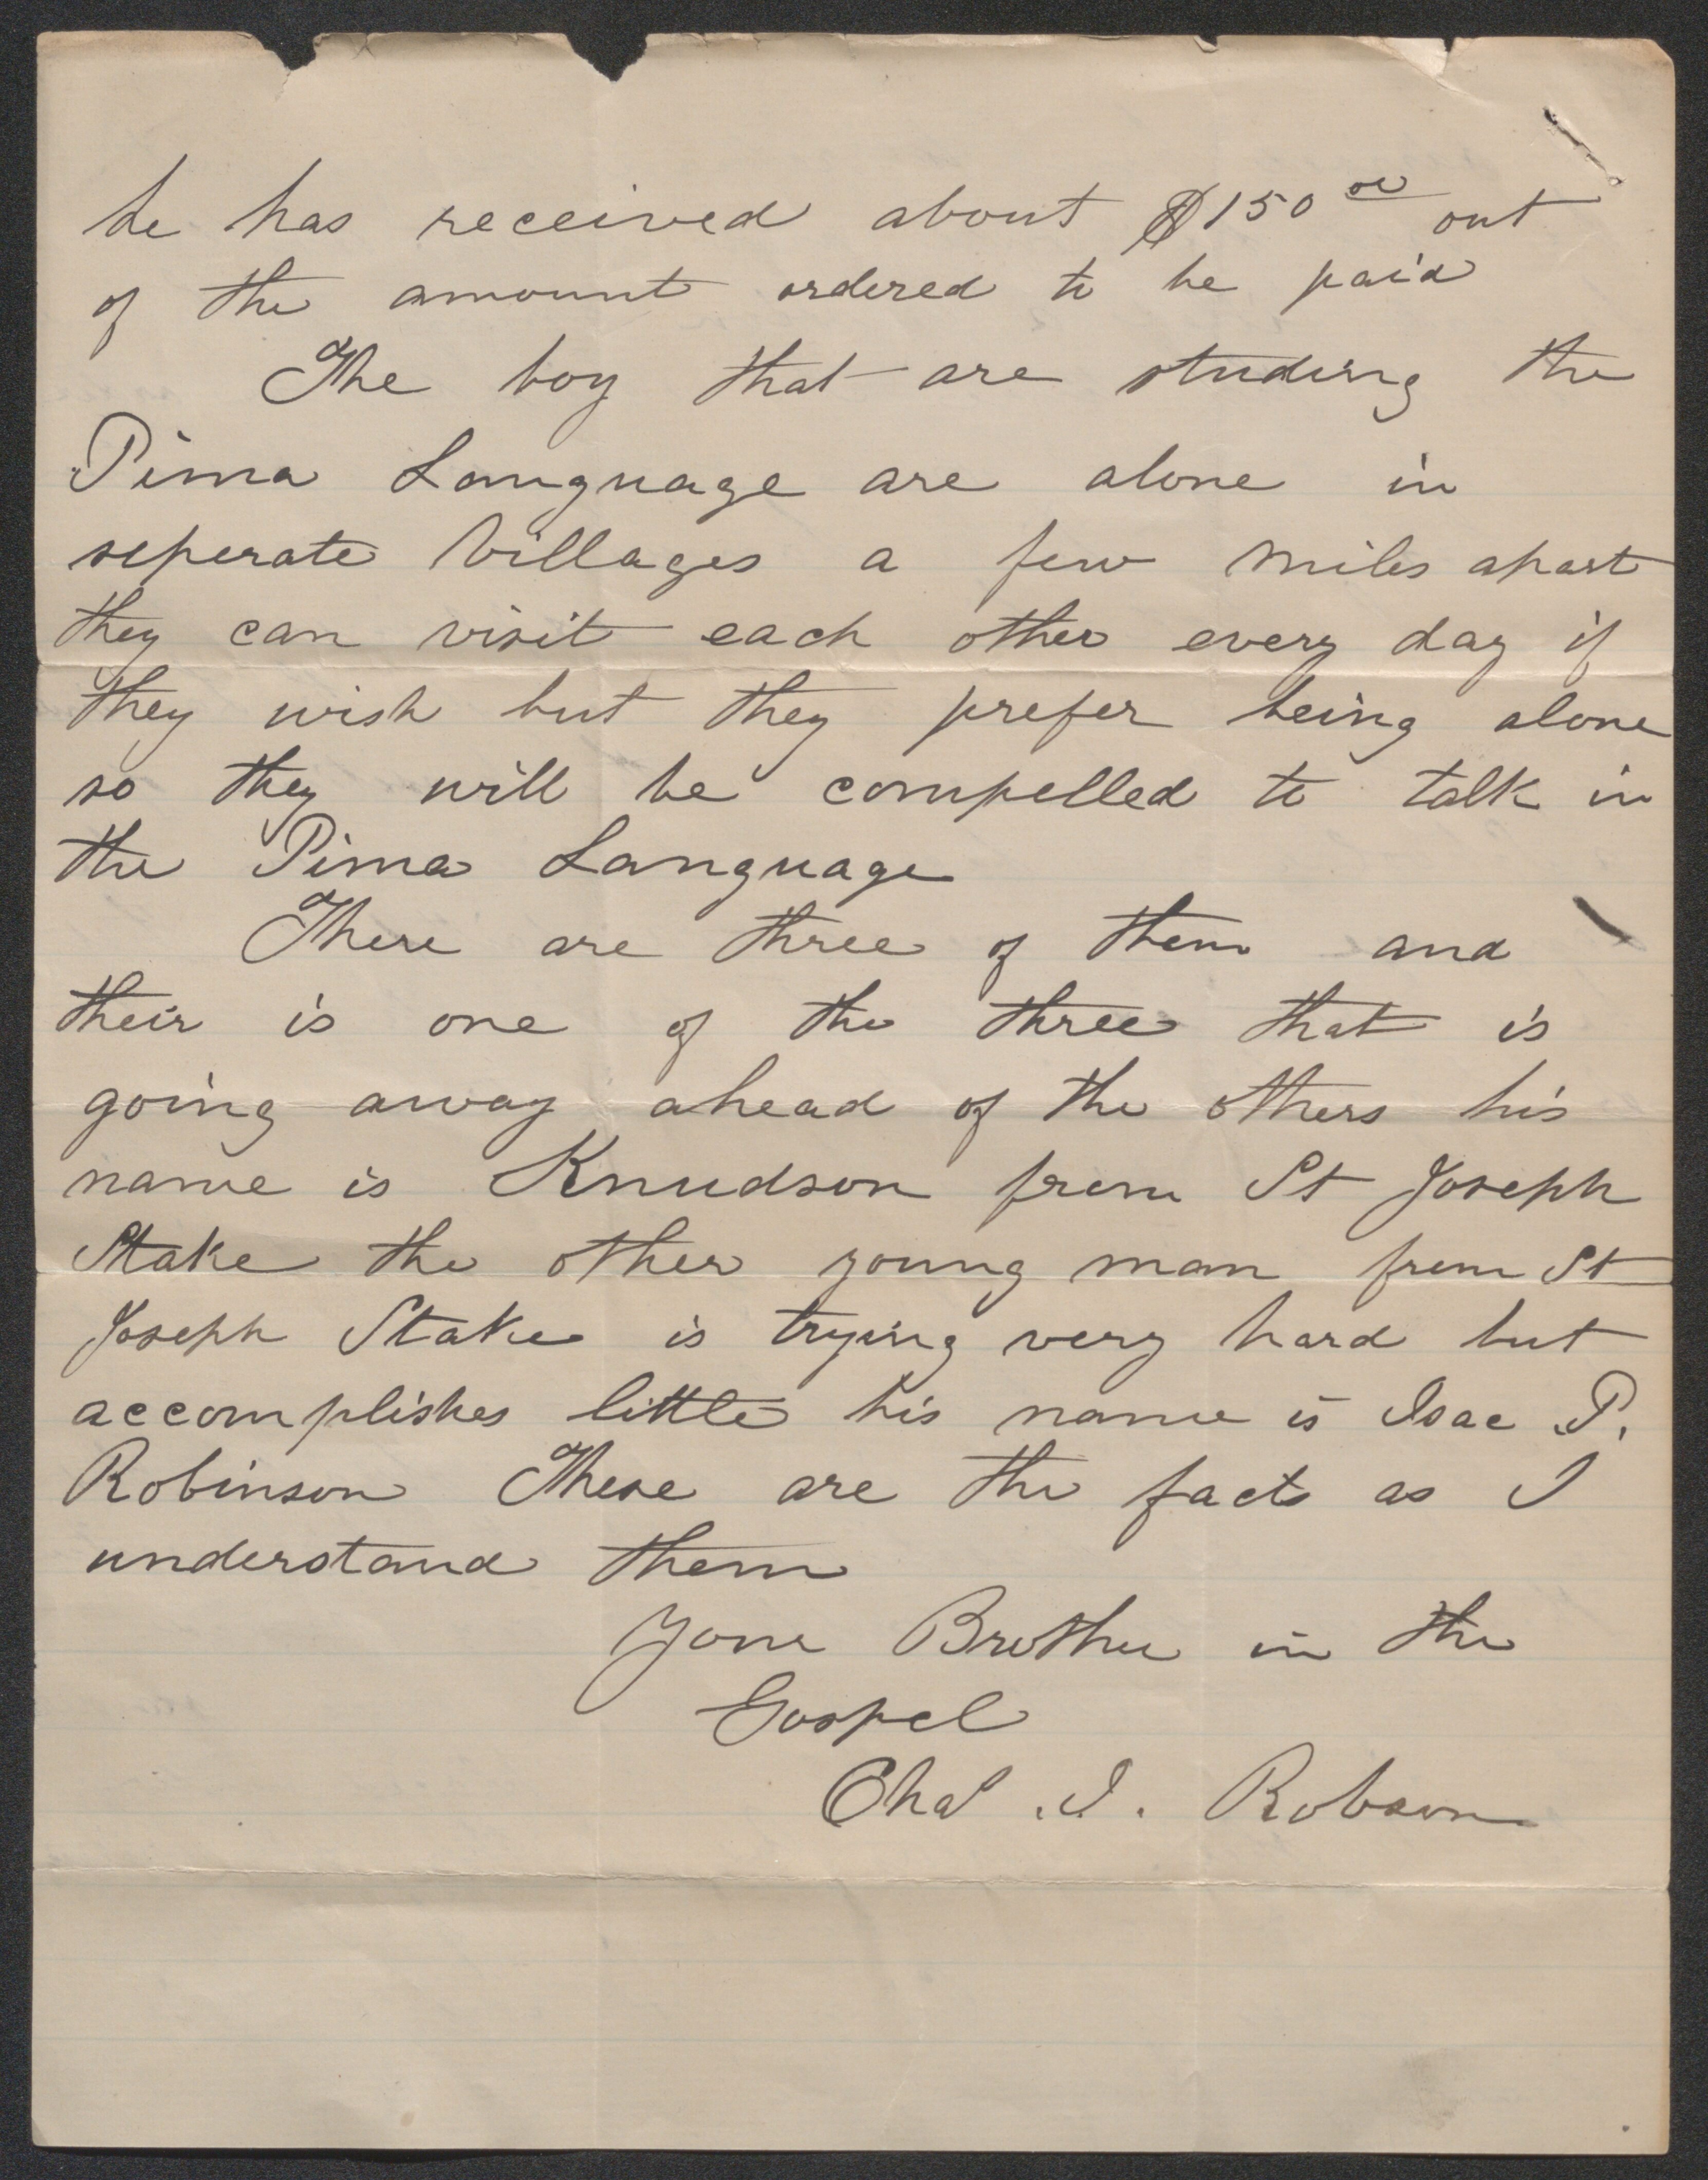 he has received about $150 00 out
of the amount ordered to be paid
The boy that are studing the
Pima Language are alone in
seperate Villages a few miles apart
they can visit each other every day if
they wish but they prefer being alone
so they will be compelled to talk in
the Pima Language
There are three of them and
their is one of the three that is
going away ahead of the others his
name is Knudson from St Joseph
Stake the other young man from St
Joseph Stake is trying very hard but
accomplishes little his name is Isac P.
Robinson These are the facts as I
understand them
Your Brother in the
Gospel
Chas .I. Robson